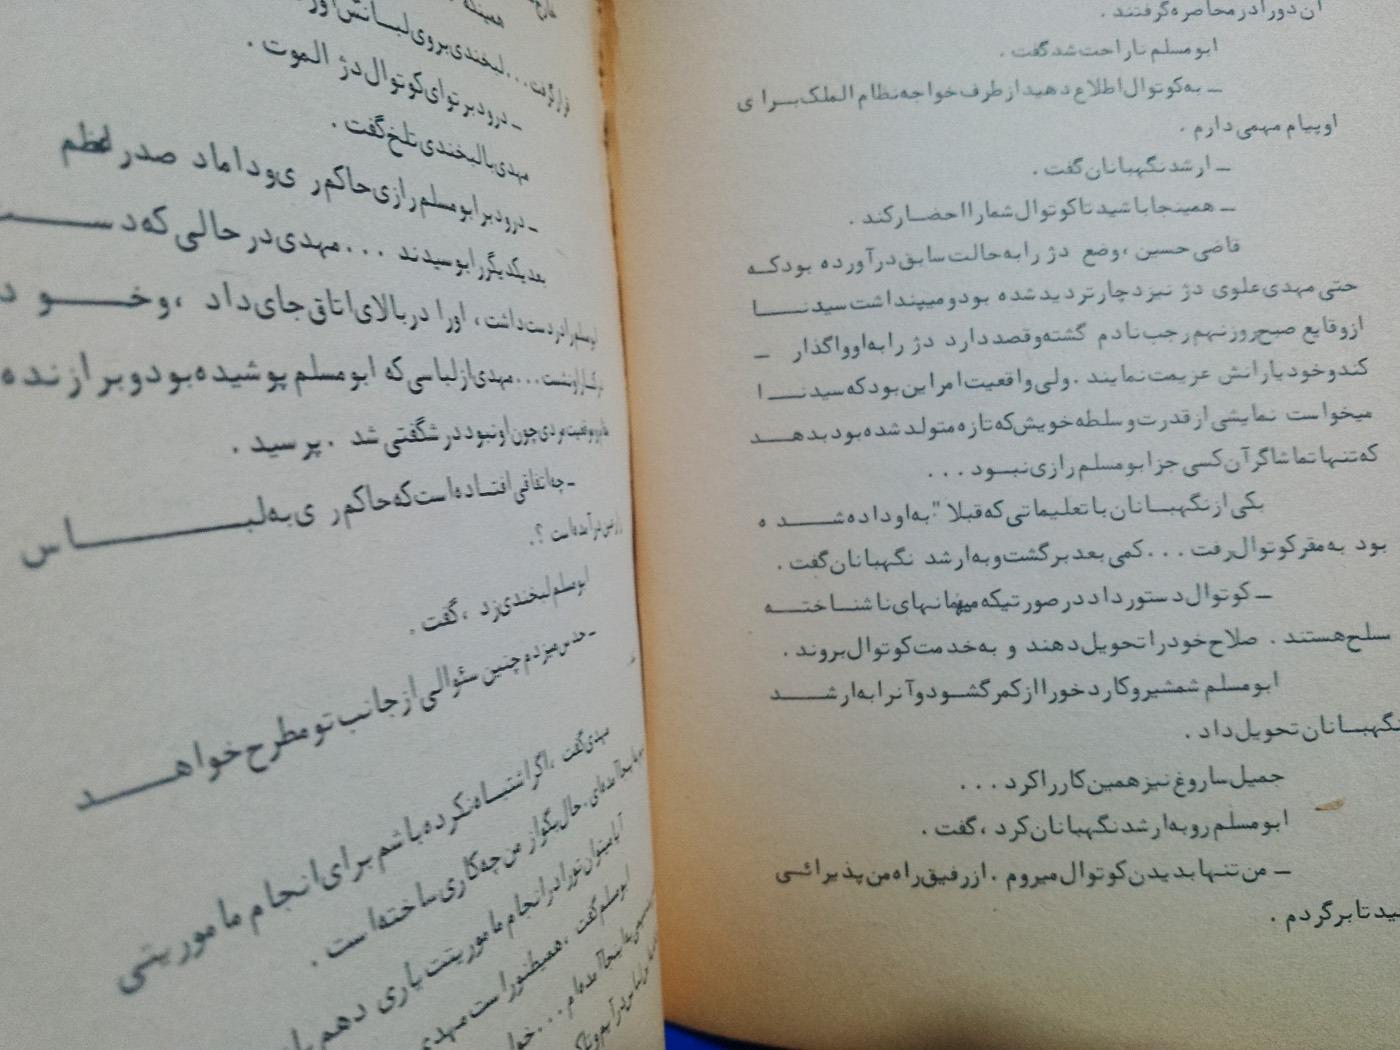 آن دو را در محاصره گرفتند .
ابومسلم ناراحت شد گفت .
ــ به کوتوال اطلاع دهید از طرف خواجه نظام الملک بـرا ی
او پیام مهمی دارم .
ــ ارشد نگهبانان گفت .
ــ همینجا باشید تا کوتوال شما را احضـار کند .
قاضی حسین ، وضع دژ را به حالت سابق در آورده بود کـه
حتی مهدی علوی دژ نیز دچار تردید شده بود و میپنداشت سیدنــا
از وقایع صبح روز نهم رجب نادم گشته و قصد دارد دژ را به او واگذار ــ
کند و خود یارانش عزیمت نمایند . ولی واقعیت امر این بود که سیدنــا
میخواست نمایشی از قدرت و سلطه خویش که تازه متولد شده بود بدهـد
که تنها تماشاگر آن کسی جز ابومسلم رازی نبـود . . .
یکی از نگهبـانان با تعلیماتی که قبلا" به او داده شـــد ه
بود به مقر کوتوال رفت . . . کمی بعد برگشت و به ارشد نگهبانان گفت .
ــ کوتوال دستور داد در صورتیکه میهمانهای ناشنـاختـه
سلح هستند . صلاح خود را تحویل دهند و به خدمت کوتوال بروند .
ابومسلم شمشیر و کارد خورا از کمر گشـود و آنرا به ارشــد
نگهبـانان تحویل داد .
جمیل ساروغ نیز همین کار را کرد . . .
ابومسلم رو به ارشد نگهبانان کرد ، گفت .
ــ من تنها بدیدن کوتوال میروم . از رفیق راه من پذیرائـی
ید تا برگردم .
همینکه
قرار گرفت . . . لبخندی بروی لبـانش
ــ درود بر توای کوتوال دژ الموت .
مهدی با لبخندی تلخ گفت .
ــ درود بر ابومسلم رازی حاکم ر ی و داماد صدر اعظم
بعد یکدیگر را بوسیدند . . . مهدی در حالی که دســـت
ابومسلم را در دست داشت ، او را در بالای اتاق جای داد ، و خــود
در کنار او نشست . . . مهدی از لباسی که ابومسلم پوشیده بود و برازنده
موقعیت مردی چون او نبود در شگفتی شد . پرسید .
ــ چه اتفاقی افتـاده است که حاکم ر ی به لبــــاس
در آمده است ؟ .
ابومسلم لبخندی زد ، گفت .
ــ حدس میزدم چنین سئوالی از جانب تو مطرح خواهـــد
مهدی گفت ، اگر اشتبـاه نکرده باشم برای انجام ماموریتی
به اینجا آمده‌ای . حال بگو از من چه کاری ساخته است .
آیا میتوان تو را در انجام ماموریتت یاری دهم
ابومسلم گفت ، همینطور است مهدی
به اینجا آمده‌ام . . .